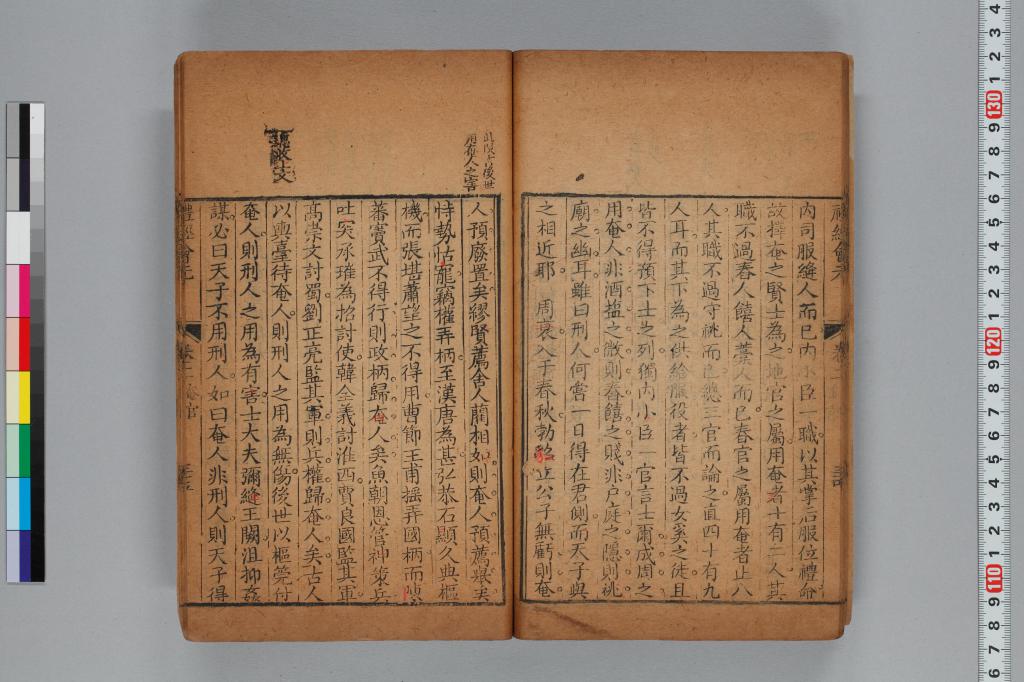 內司服縫人而已內小臣一職以其掌后服位禮命
故擇奄之賢士為之地官之屬用奄者十有二人其
職不過舂人饎人藁人而已春官之屬用奄者止八
人其職不過守祧而已總三官而論之直四十有九
人耳而其下為之供給服役者皆不過女奚之徒且
皆不得預下士之列獨內小臣一官言士爾成周之
用奄人非酒塩之微則舂饎之賤非戶庭之隱則祧
廟之幽耳雖曰刑人何嘗一日得在君側而天子與
之相近耶 周衰入于春秋勃鞮立公子無虧則奄
此段言後世
用奄人之害
人預廢置矣繆賢薦舍人藺相如則奄人預薦舉矣
恃勢怙寵竊權弄柄至漢唐為甚弘恭石顯久典樞
機而張堪蕭望之不得用曹節王甫操弄國柄而陳
蕃竇武不得行則政柄歸奄人矣魚朝恩管神策兵
吐突承璀為招討使韓全義討淮西賈良國監其軍
高崇文討蜀劉正亮監其軍則兵權歸奄人矣古人
以輿臺待奄人則刑人之用為無傷後世以樞筦付
奄人則刑人之用為有害士大夫彌縫王闕沮抑姦
謀必曰天子不用刑人如曰奄人非刑人則天子得
禮經會元 卷二 奄官